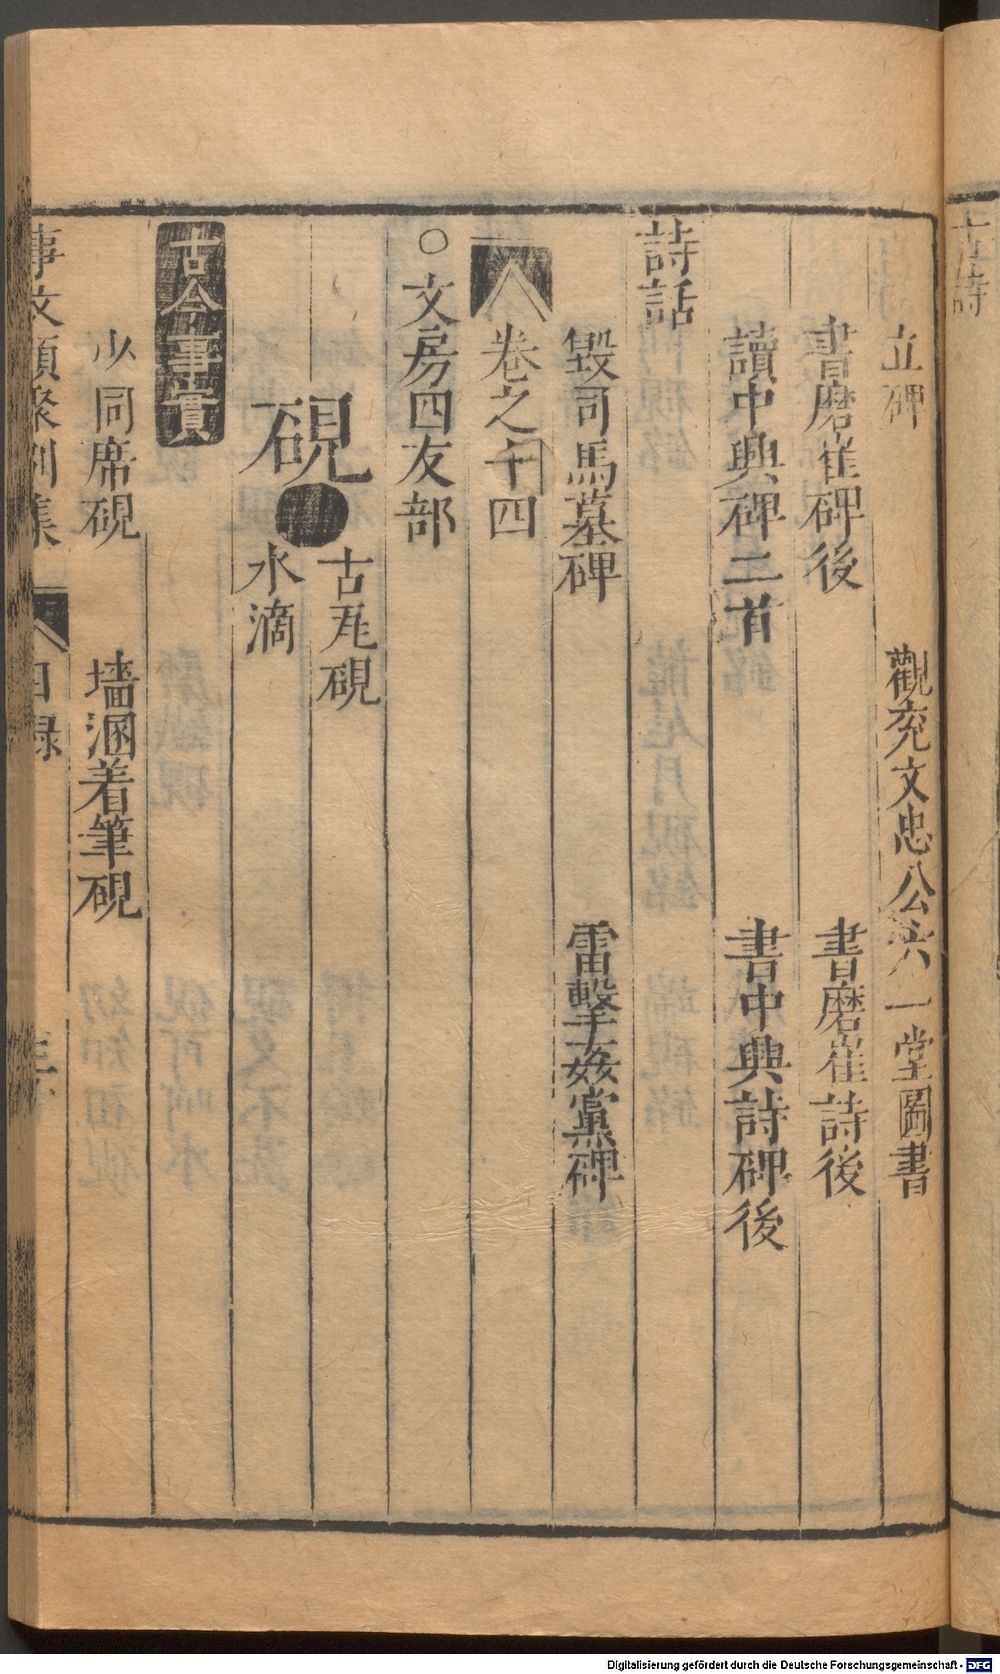 古詩
立碑　觀充文忠公六一堂圖書
書磨崖碑後　書磨崖詩後
讀中興碑二首　書中興詩碑後
詩話
毀司馬墓碑　雷擊姦黨碑
卷之十四
○文房四友部
硯
古瓦硯
水滴
古今事實
少同席硯　墻溷着筆硯
事文類聚別集　目録
Digitalisierung gefördert durch die Deutsche Forschungsgemeinschaft - DFG